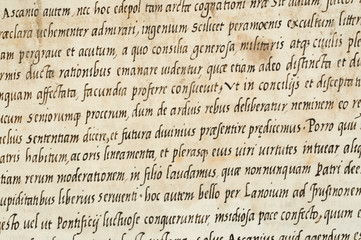 Ascanio autem, nec hoc edepol tam arcte cognationi
raclara vehementer admirari, ingenium scilicet peramoenis excultum litter
am pergrave et acutum, a quo consilia generosa, militaris atq; civilis ple
rmis ducta rationibus emanare videntur, quae etiam adeo distincta et di
nquam affectata, facundia proferre consuevit, Vt in conciliis et disceptati
ucum seniorumque procerum, dum de arduis rebus deliberatur, neminem eo re
elius sententiam dicere, et futura divinius praesentire praedicemus. Porro quid
atris habitum, ac oris lineamenta, et plerasq; eius viri virtutes intuear aliq
tiam rerum moderationem, in filio laudamus, quae nonnunquam Patri dee
upiditatibus liberius servienti. hoc autem bello per Lanoium ad Frusinonem
esto vel ut Pontificij luctuose conqueruntur, insidiosa pace confecto, quum e
Ascanius quid agendum